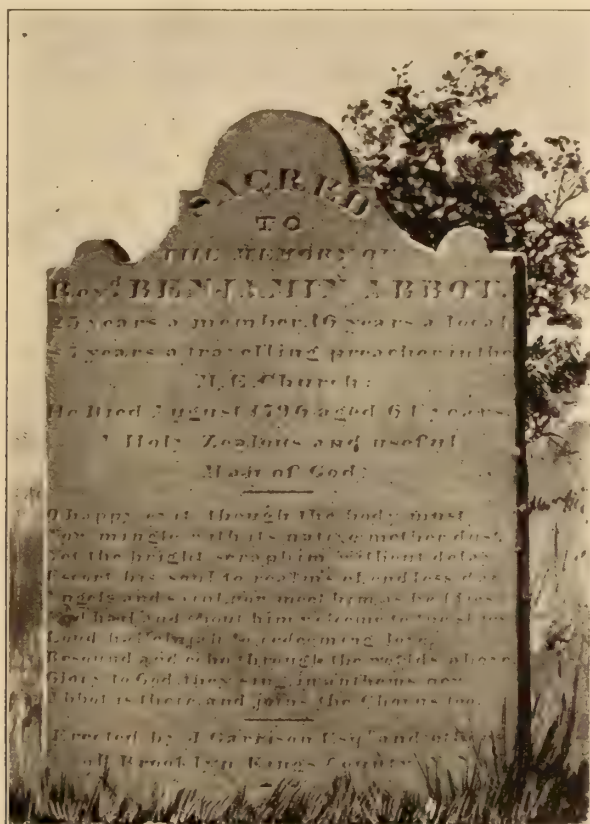 SACRED
TO
THE MEMORY OF
Revd. BENJAMIN ABBOT.
25 years a member, 16 years a local
& 7 years a travelling preacher in the
M. E. Church:
He Died August 1796 aged 64 years.
A Holy Zealous and useful
Man of God;
O happy though the body must
Now mingle with its native mother dust,
Yet the bright seraphim without delay
Escort his soul to realms of endless day
Angels and meet him as he flies
And hail and shout him welcome to the skies
Loud hallelujah to redeeming love,
Resound and echo through the worlds above,
Glory to God, they sing in anthems new
Abbot is there, and joins the Chorus too.
Erected by J Garrison Esqr and others
all Brooklyn Kings County